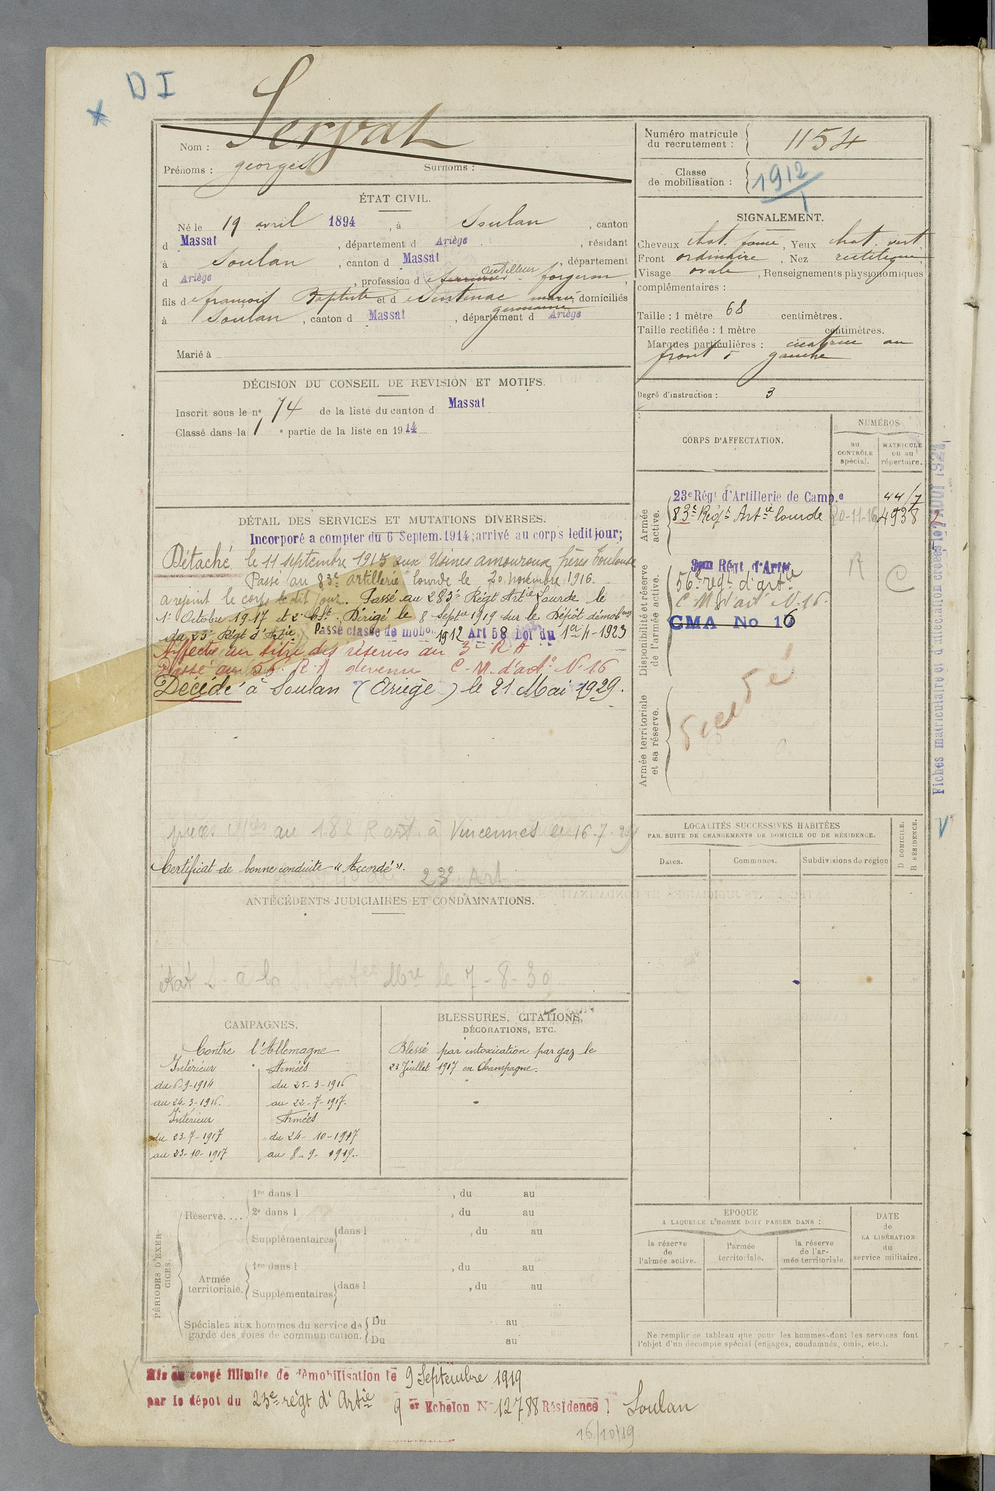 DI
Servat
Nom :
Prénoms : georges Surnoms :
ÉTAT CIVIL.
Né le 19 avril 1894, à Soulan, canton
d Massat, département d Ariège, résidant
à Soulan, canton d Massat, département
d Ariège, profession d cultivateur forgeron,
fils d françois Baptiste et d Sentenac domiciliés
germaine
à Soulan, canton d Massat, département d Ariège
Marié à
DÉCISION DU CONSEIL DE REVISION ET MOTIFS.
Inscrit sous le n° 74 de la liste du canton d Massat
Classé dans la 1 e partie de la liste en 1914
DÉTAIL DES SERVICES ET MUTATIONS DIVERSES.
Incorporé a compter du 6 Septem. 1914; arrivé au corps ledit jour;
Détaché le 11 septembre 1915 aux Usines amouroux frères Toulouse
Passé au 83e artillerie lourde le 20 novembre 1916.
a rejoint le corps le dit jour. Passé au 283e Régt Artie Lourde le
1er Octobre 1917 et 2e Cl. Dirigé le 8 Septre 1919 sur le Dépôt démob
du 23e Régt d'Artie Passé classe de mob. 1912 Art 58 Loi du 1er-4-1923
Affecté au titre des réserves au 3e R A
Passé au 56e R.A devenu C. M. d'art N° 16
Décédé à Soulan (Ariège) le 21 Mai 1929.
au 182 R art. à Vincennes le 16-7-29
Certificat de bonne conduite "Accordé".
23e Art
ANTÉCÉDENTS JUDICIAIRES ET CONDAMNATIONS.
le 7-8-30
CAMPAGNES.
Contre l'Allemagne
Intérieur Armées
du 6-9-1914 du 25-3-1916
au 24-3-1916. au 22-7-1917.
Intérieur Armées
du 23-7-1917 du 24-10-1917
au 23-10-1917 au 8-9-1919.
BLESSURES, CITATIONS,
DÉCORATIONS, ETC.
Blessé par intoxication par gaz le
23 Juillet 1917 en Champagne.
PÉRIODES D'EXERCICES.
Réserve....
1re dans l , du au
2e dans l , du au
Supplémentaires dans l , du au
Armée territoriale.
1re dans l , du au
Supplémentaires dans l , du au
Spéciales aux hommes du service de garde des voies de communication.
Du au
Du au
Mis en congé illimité de démobilisation le 9 Septembre 1919
par le dépot du 23e régt d'Artie 9 er Echelon N° 12788 Résidence Soulan
16/10/19
Numéro matricule du recrutement : 1154
Classe de mobilisation : 1912
SIGNALEMENT.
Cheveux chat. foncé, Yeux chat. vert
Front ordinaire, Nez rectiligne
Visage ovale, Renseignements physionomiques
complémentaires :
Taille : 1 mètre 68 centimètres.
Taille rectifiée : 1 mètre centimètres.
Marques particulières : cicatrice au
front à gauche
Degré d'instruction : 3
CORPS D'AFFECTATION.
NUMÉROS
AU CONTRÔLE spécial.
MATRICULE ou au répertoire.
Armée active.
23e Régt d'Artillerie de Camp.e
83e Régt Artie lourde 20-11-16 4938
Disponibilité et réserve de l'armée active.
Régt d'Artie
56e regt d'artie
C M d'art N. 16
CMA No 16
R
C
Armée territoriale et sa réserve.
Décédé
Fiches matriculaire et d'affectation créées le 7 AOUT 1924
LOCALITÉS SUCCESSIVES HABITÉES
PAR SUITE DE CHANGEMENTS DE DOMICILE OU DE RÉSIDENCE.
Dates.
Communes.
Subdivisions de région
D DOMICILE.
R RÉSIDENCE.
EPOQUE
A LAQUELLE L'HOMME DOIT PASSER DANS :
la réserve de l'armée active.
l'armée territoriale.
la réserve de l'armée territoriale.
DATE de LA LIBÉRATION du service militaire.
Ne remplir ce tableau que pour les hommes dont les services font
l'objet d'un décompte spécial (engagés, condamnés, omis, etc.).